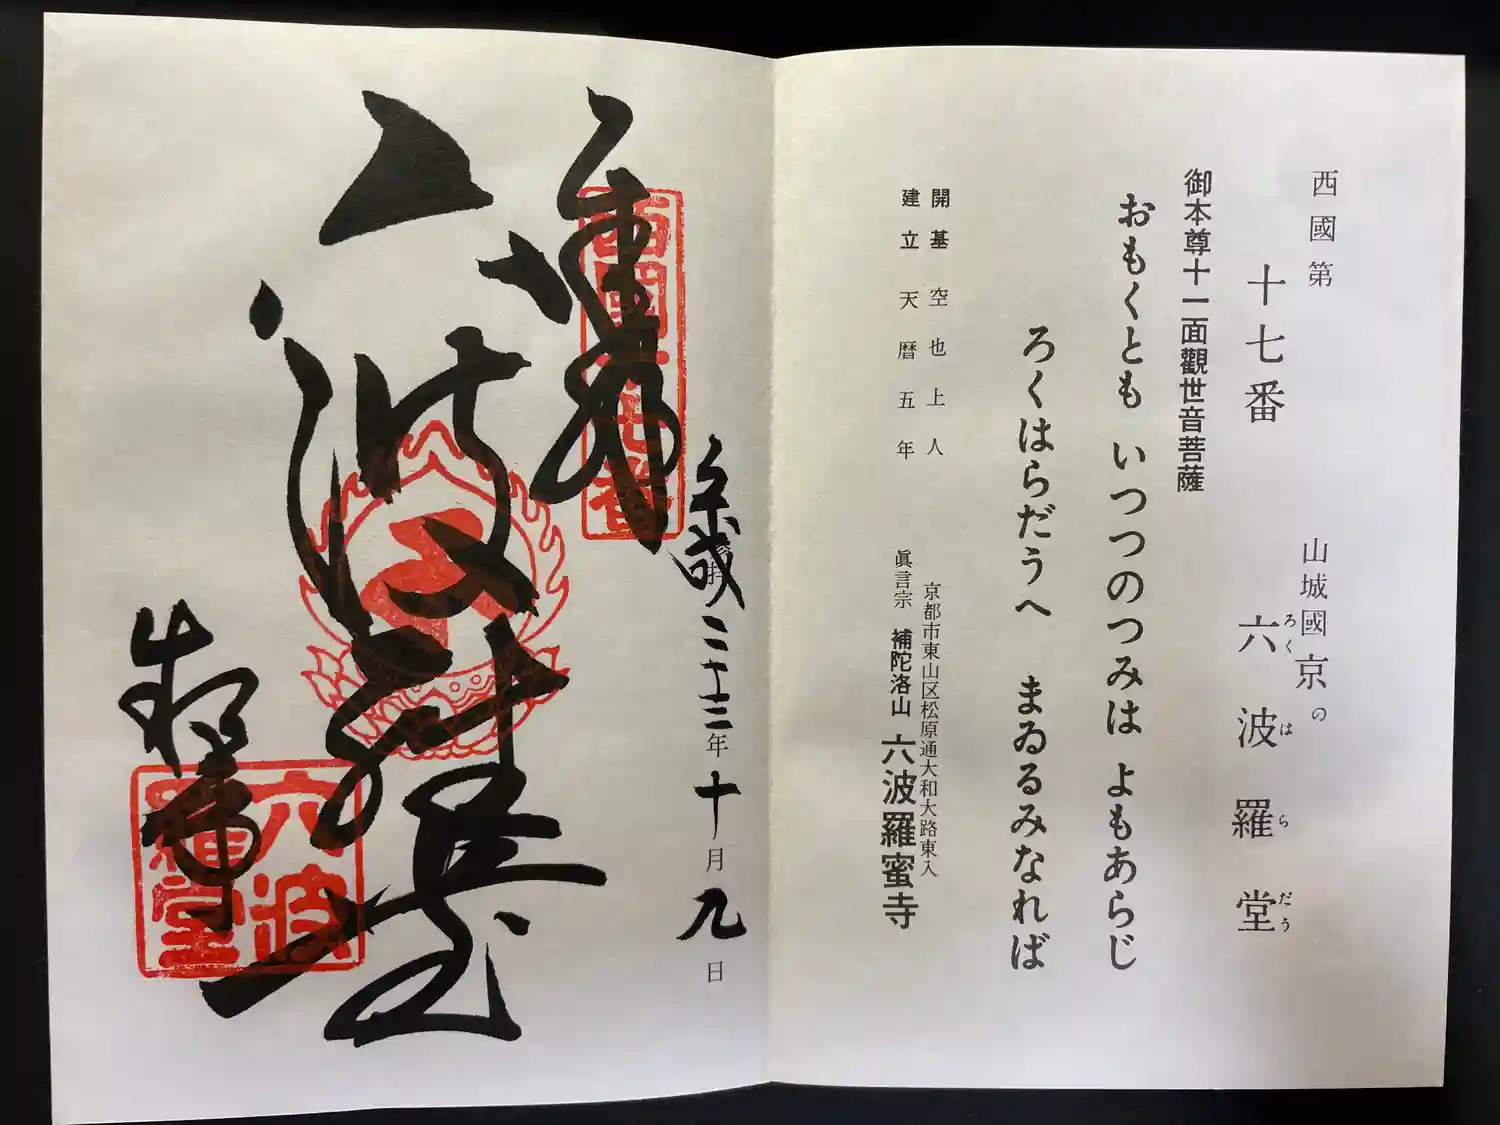 西國第
十七番
山城國京の
六波羅堂
ろくはらだう
御本尊十一面觀世音菩薩
おもくとも いつつのつみは よもあらじ
ろくはらだうへ まゐるみなれば
開基 空也上人
建立 天暦五年
京都市東山区松原通大和大路東入
眞言宗 補陀洛山 六波羅蜜寺
奉拝
西國十七番
年十月九日
六波羅堂
六波羅堂